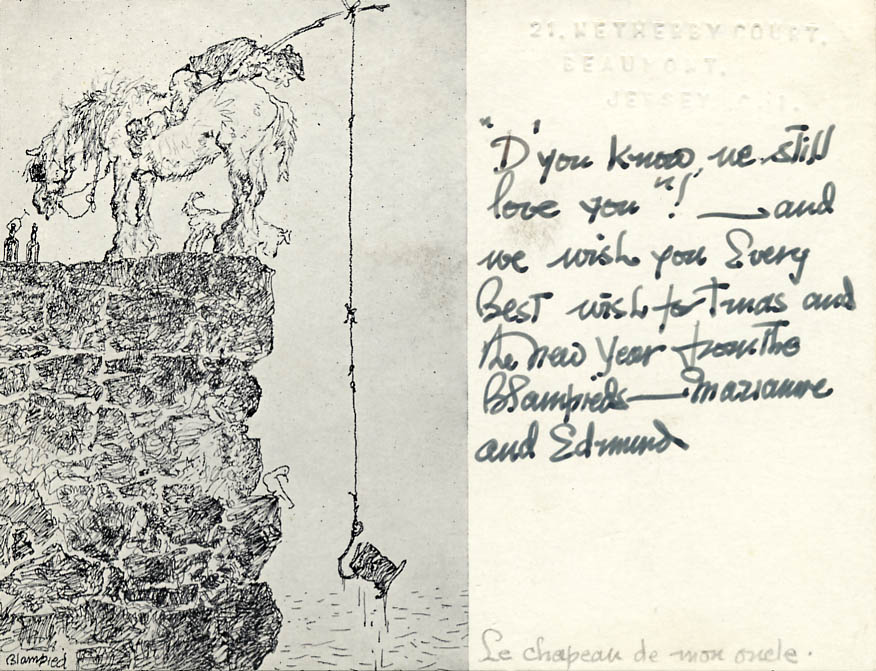 Blampied
21, WETHERBY COURT,
BEAUMONT,
JERSEY, C.I.
"D'you know, we still
love you"! — and
we wish you Every
Best wish for Tmas and
the new year from the
Blampieds — Marianne
and Edmund
Le chapeau de mon oncle.